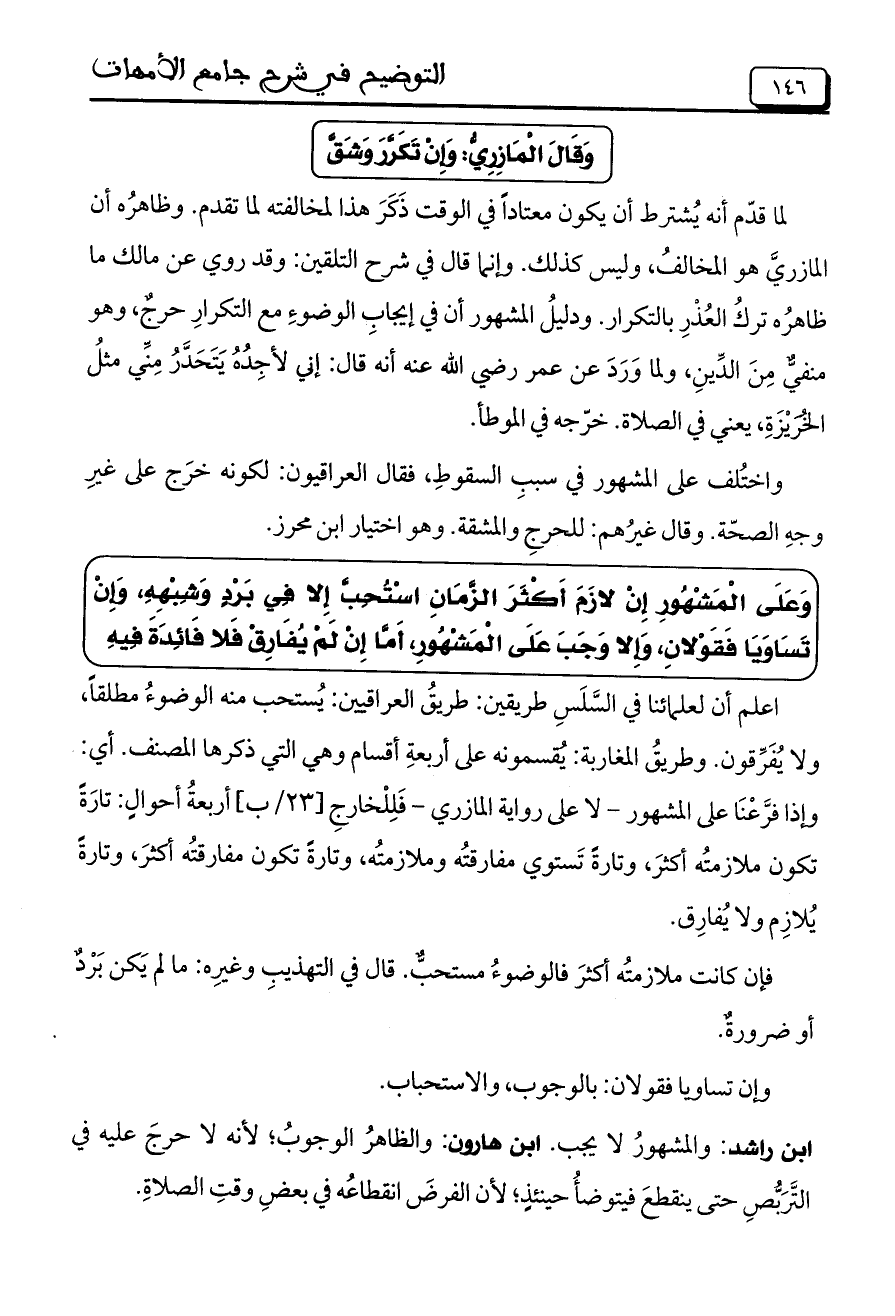 ١٤٦
التوضيح في شرح جامع الأمهات
وَقَالَ الْمَازِرِيُّ: وَإِنْ تَكَرَّرَ وَشَقَّ
لما قدّم أنه يُشترط أن يكون معتاداً في الوقت ذَكَرَ هذا لمخالفته لما تقدم. وظاهرُه أن
المازريَّ هو المخالفُ، وليس كذلك. وإنما قال في شرح التلقين: وقد روي عن مالك ما
ظاهرُه تركُ العُذْرِ بالتكرار. ودليلُ المشهور أن في إيجابِ الوضوءِ مع التكرارِ حرجٌ، وهو
منفيٌّ مِنَ الدِّينِ، ولما وَرَدَ عن عمر رضي الله عنه أنه قال: إني لأجِدُهُ يَتَحَدَّرُ مِنِّي مثلُ
الخُرَيْزَةِ، يعني في الصلاة. خرّجه في الموطأ.
واختُلف على المشهور في سببِ السقوطِ، فقال العراقيون: لكونه خرَج على غيرِ
وجهِ الصحّة. وقال غيرُهم: للحرجِ والمشقة. وهو اختيار ابن محرز.
وَعَلَى الْمَشْهُورِ إِنْ لازَمَ أَكْثَرَ الزَّمَانِ اسْتُحِبَّ إِلا فِي بَرْدٍ وَشِبْهِهِ، وَإِنْ
تَسَاوَيَا فَقَوْلانِ، وَإِلا وَجَبَ عَلَى الْمَشْهُورِ، أَمَّا إِنْ لَمْ يُفَارِقْ فَلا فَائِدَةَ فِيهِ
اعلم أن لعلمائنا في السَّلَسِ طريقين: طريقُ العراقيين: يُستحب منه الوضوءُ مطلقاً،
ولا يُفَرِّقون. وطريقُ المغاربة: يُقسمونه على أربعةِ أقسام وهي التي ذكرها المصنف. أي:
وإذا فرَّعْنَا على المشهور – لا على رواية المازري – فَلِلْخارجِ [٢٣/ ب] أربعةُ أحوالٍ: تارَةً
تكون ملازمتُه أكثرَ، وتارةً تَستوي مفارقتُه وملازمتُه، وتارةً تكون مفارقتُه أكثرَ، وتارةً
يُلازِم ولا يُفارِق.
فإن كانت ملازمتُه أكثرَ فالوضوءُ مستحبٌّ. قال في التهذيبِ وغيرِه: ما لم يَكن بَرْدٌ
أو ضرورةٌ.
وإن تساويا فقولان: بالوجوبِ، والاستحباب.
ابن راشد: والمشهورُ لا يجب. ابن هارون: والظاهرُ الوجوبُ؛ لأنه لا حرجَ عليه في
التَّرَبُّصِ حتى ينقطعَ فيتوضأُ حينئذٍ؛ لأن الفرضَ انقطاعُه في بعضِ وقتِ الصلاةِ.